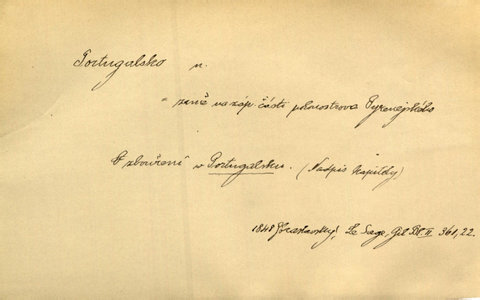 Portugalsko n.
= země na záp. části poloostrova Pyrenejského
O zbouření v Portugalsku. (Nadpis kapitoly)
1848 Le Sage, Gil Bl. II 361, 22.